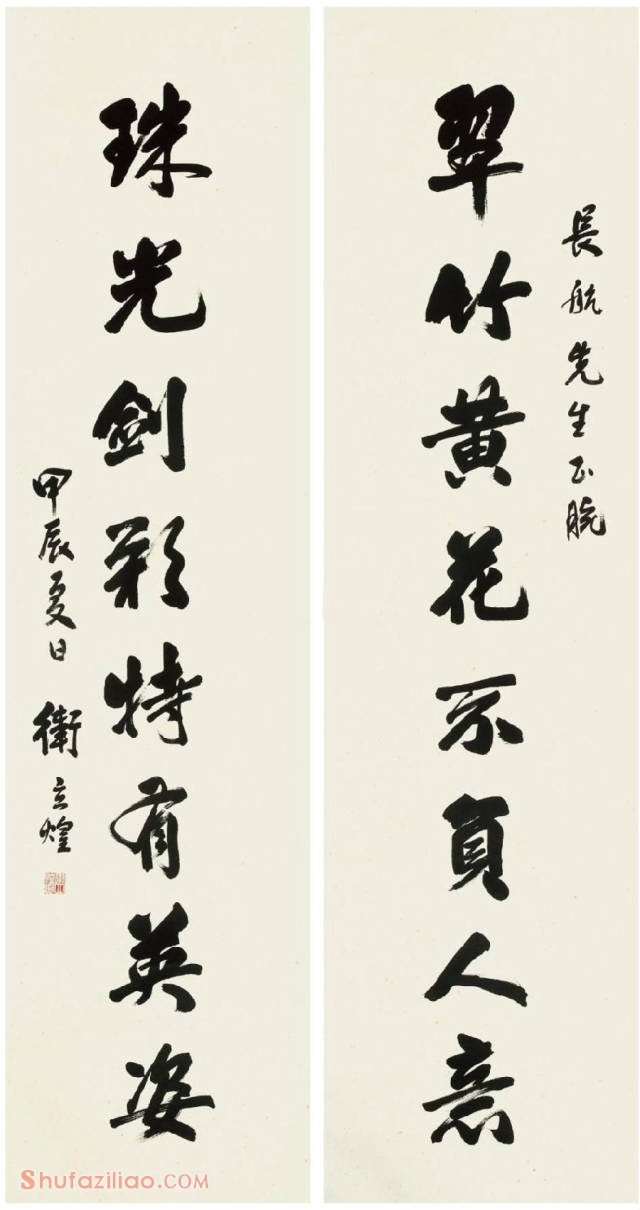 長航先生正腕
翠竹黄花不負人意
珠光劍彩特有英姿
甲辰夏日 衛立煌
Shufaziliao.COM